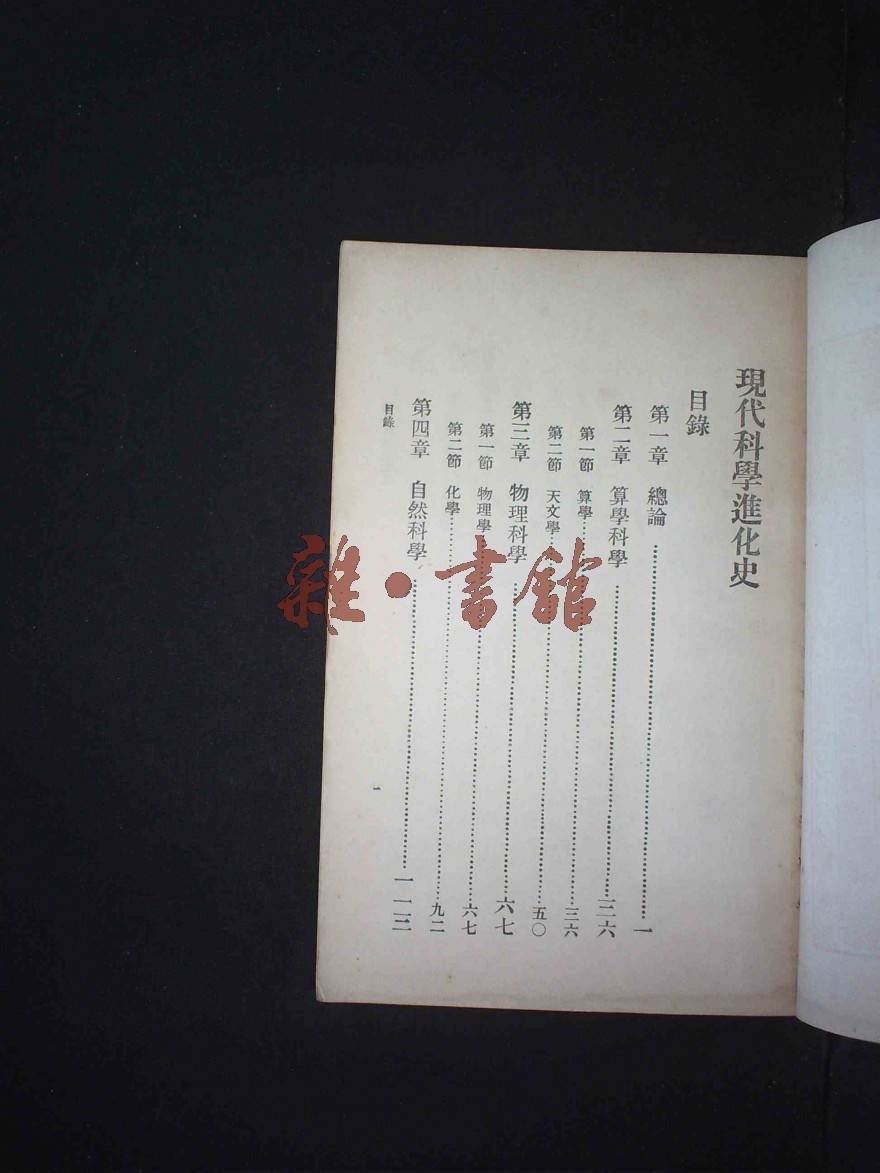 現代科學進化史
目錄
第一章 總論……一
第二章 算學科學……三六
第一節 算學……三六
第二節 天文學……五〇
第三章 物理科學……六七
第一節 物理學……六七
第二節 化學……九二
第四章 自然科學……一一三
目錄
一
雜·書館